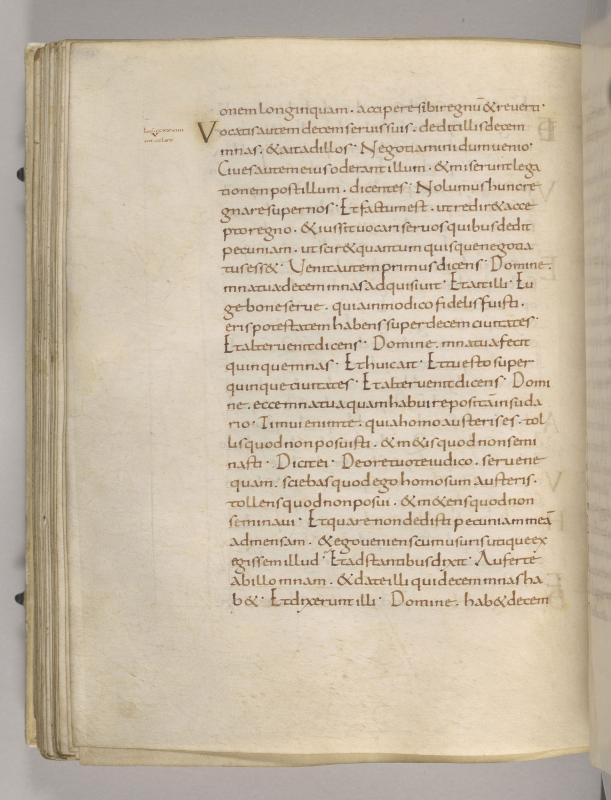 onem longinquam. accipere sibi regnū & reverti.
Vocatis autem decem servis suis. dedit illis decem
mnas. & ait ad illos. Negotiamini dum venio.
Cives autem eius oderant illum. & miserunt lega
tionem post illum. dicentes. Nolumus hunc re
gnare super nos. Et factum est. ut redir& acce
pto regno. & iussit vocari servos quibus dedit
pecuniam. ut scir& quantum quisque negotia
tus ess&. Venit autem primus dicens. Domine.
mna tua decem mnas adquisivit. Et ait illi. Eu
ge bone serve. quia in modico fidelis fuisti.
eris potestatem habens super decem civitates.
Et alter venit dicens. Domine. mna tua fecit
quinque mnas. Et huic ait. Et tu esto super
quinque civitates. Et alter venit dicens. Domi
ne. ecce mna tua quam habui repositā in suda
rio. Timui enim te. quia homo austeris es. tol
lis quod non posuisti. & m&is quod non semi
nasti. Dicit ei. De ore tuo te iudico. serve ne
quam. sciebas quod ego homo sum austeris.
tollens quod non posui. & m&ens quod non
seminavi. Et quare non dedisti pecuniam meā
ad mensam. & ego veniens cum usuris utique ex
egissem illud. Et adstantibus dixit. Auferte
ab illo mnam. & date illi qui decem mnas ha
b&. Et dixerunt illi. Domine. hab& decem